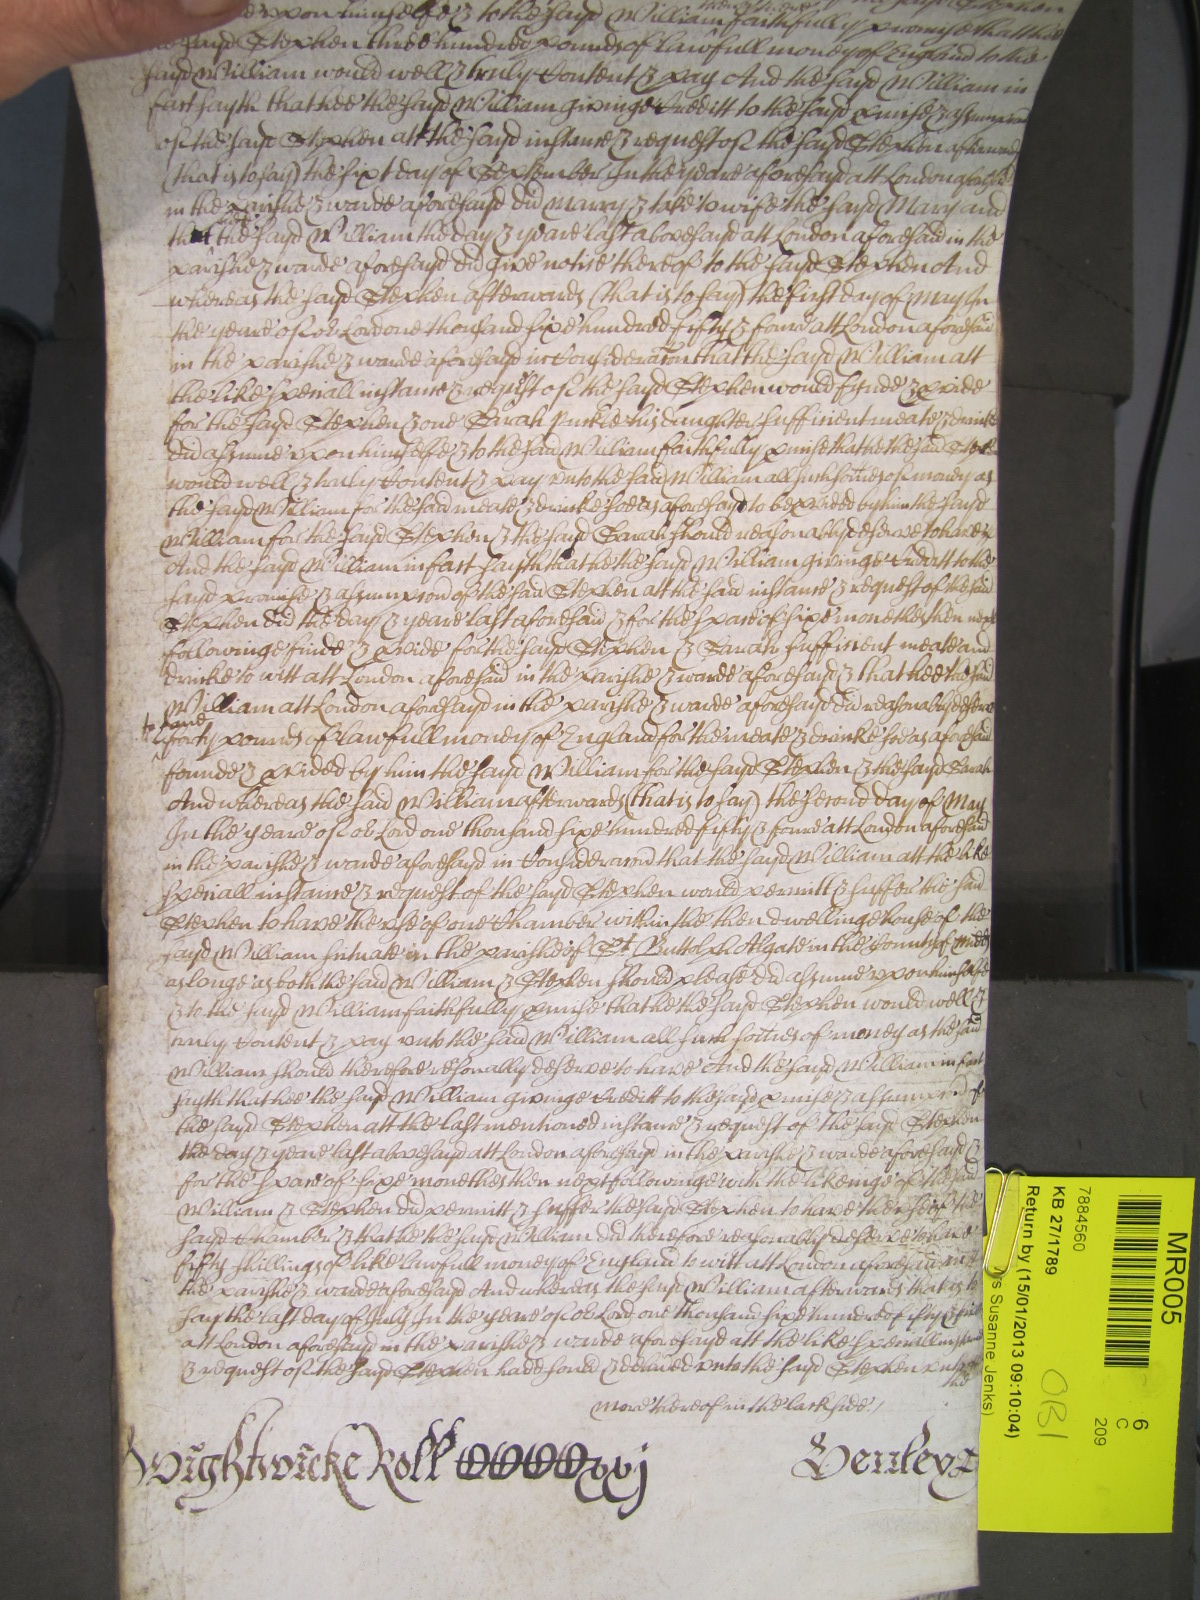 upon himselfe & to the sayd William faithfully promise that hee
the sayd Stephen three hundred pounds of lawfull money of England to the
sayd William would well & truly Content & pay And the sayd William in
fact sayth that hee the sayd William givinge Creditt to the sayd pmise & assumpcion
of the said Stephen att the sayd instance & request of the sayd Stephen afterwards
(that is to say) the sixt day of September In the yeare aforesayd att London aforesaid
in the parishe & warde aforesayd did Marry & take to wife the sayd Mary and
that the sayd William the day & yeare last abovesayd att London aforesaid in the
parishe & warde aforesayd did give notice thereof to the sayd Stephen And
whereas the sayd Stephen afterwards (that is to say) the first day of May In
the yeare of or Lord one thousand sixe hundred fifty & foure att London aforesaid
in the parishe & warde aforesayd in Consideracon that the sayd William att
the like speciall instance & request of the sayd Stephen would fynde & pvide
for the sayd Stephen & one Sarah his daughter sufficient meate & drinke
did assume upon himselfe & to the said William faithfully pmise that hee the said Stephen
would well & truly Content & pay unto the said William all such somes of money as
the sayd William for the said meate & drinke soe as aforesayd to be pvided by him the sayd
William for the sayd Stephen & the sayd Sarah should reasonably deserve to have
And the sayd William in fact sayth that hee the sayd William givinge Creditt to the
sayd promise & assumpcion of the said Stephen att the said instance & request of the said
Stephen did the day & yeare last aforesaid & for the space of sixe monethes then next
followinge finde & pvide for the sayd Stephen & Sarah sufficient meate and
drinke to witt att London aforesaid in the parishe & warde aforesayd & that hee the said
William att London aforesayd in the parishe & warde aforesayd did reasonably deserve
to have
forty pounds of lawfull money of England for the meate & drinke soe as aforesaid
founde & pvided by him the sayd William for the sayd Stephen & the sayd Sarah
And whereas the said William afterwards (that is to say) the second day of May
In the yeare of or Lord one thousand sixe hundred fifty & foure att London aforesaid
in the parishe & warde aforesayd in Consideracon that the sayd William att the like
speciall instance & request of the sayd Stephen would permitt & suffer the said
Stephen to have the use of one Chamber within the then dwellinge house of the
sayd William scituate in the parishe of St Buttolph Algate in the County of Midd
as longe as both the said William & Stephen should please did assume upon himselfe
& to the sayd William faithfully pmise that hee the sayd Stephen would well &
truly Content & pay unto the said William all such somes of money as the said
William should therefore resonally deserve to have And the sayd William in fact
sayth that hee the sayd William givinge Creditt to the sayd pmise & assumpcion of
the sayd Stephen att the last mentioned instance & request of the sayd Stephen
the day & yeare last abovesayd att London aforesayd in the parishe & warde aforesayd &
for the space of sixe monethes then next followinge with the likeinge of the said
William & Stephen did permitt & suffer the sayd Stephen to have the use of the
sayd Chamber & that hee the sayd William did therefore reasonably deserve to have
fifty shillings of like lawfull money of England to witt att London aforesaid in
the parishe & warde aforesayd And whereas the sayd William afterwards that is to
say the last day of July In the yeare of or Lord one thousand sixe hundred fifty &
att London aforesayd in the parishe & warde aforesayd att the like speciall instance
& request of the sayd Stephen had sould & delived unto the sayd Stephen
the
more thereof in the backside /
Wightwicke Roll xxj
MR005
6
C
209
7884560
KB 27/1789
Return by (15/01/2013 09:10:04)
Susanne Jenks)
OB1